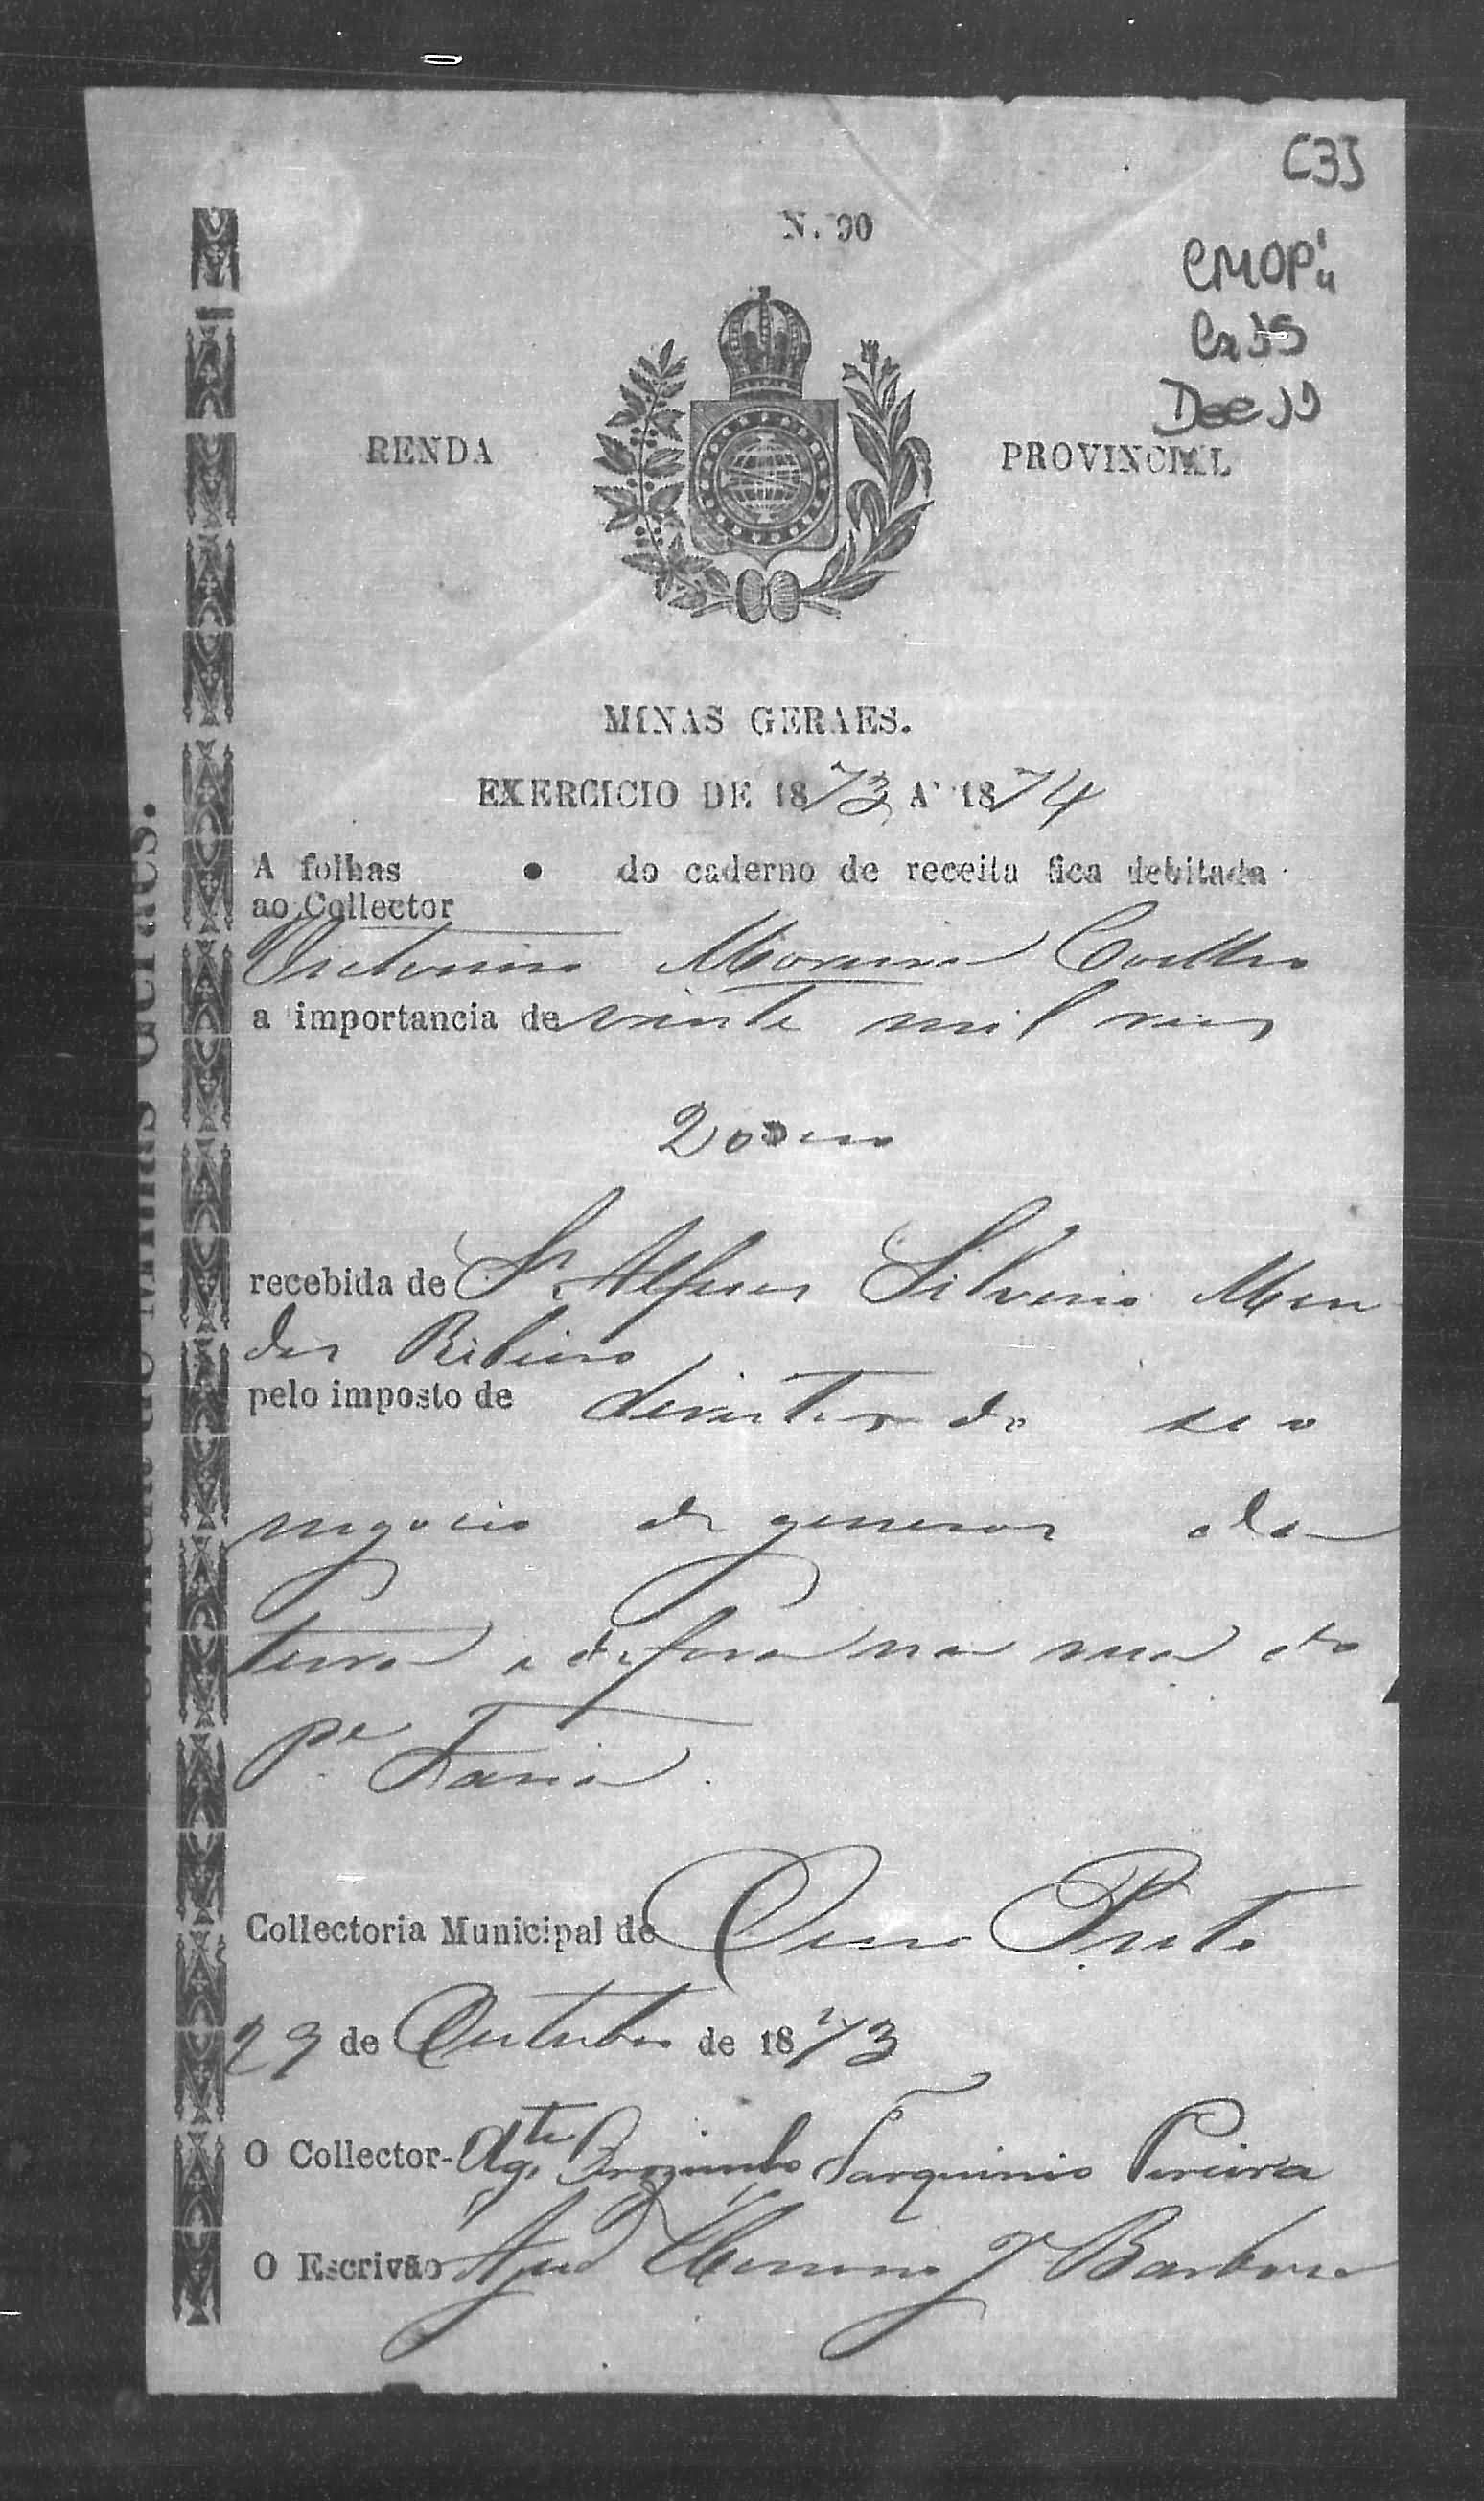 [3]
N. 90
CMOP
Cx 35
Doc 19
RENDA PROVINCIAL
MINAS GERAES.
EXERCICIO DE 1873 A' 1874
A folhas • do caderno de receita fica debitada
ao Collector
Antonio Moreira Coelho
a importancia de vinte mil reis
recebida de Sr. Alferes Silverio Men
des Ribeiro
pelo imposto de direitos do seo
negocio de generos da
terra e de fora na rua do
Pe. Faria.
Collectoria Municipal de Ouro Preto
29 de Outubro de 1873
O Collector- Agte Tarquinio Pereira
O Escrivão Barbosa
Minas Geraes.